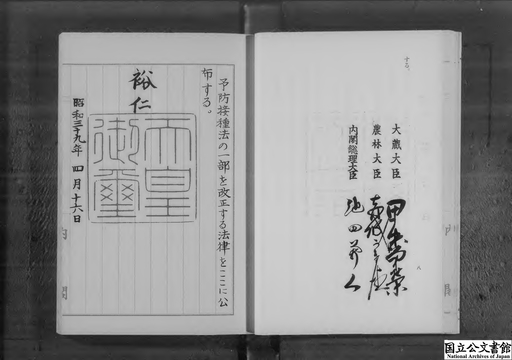 する。
大蔵大臣 田中角榮
農林大臣
内閣総理大臣 池田勇人
予防接種法の一部を改正する法律をここに公
布する。
裕仁
天皇
御璽
昭和三十九年四月十六日
国立公文書館
National Archives of Japan